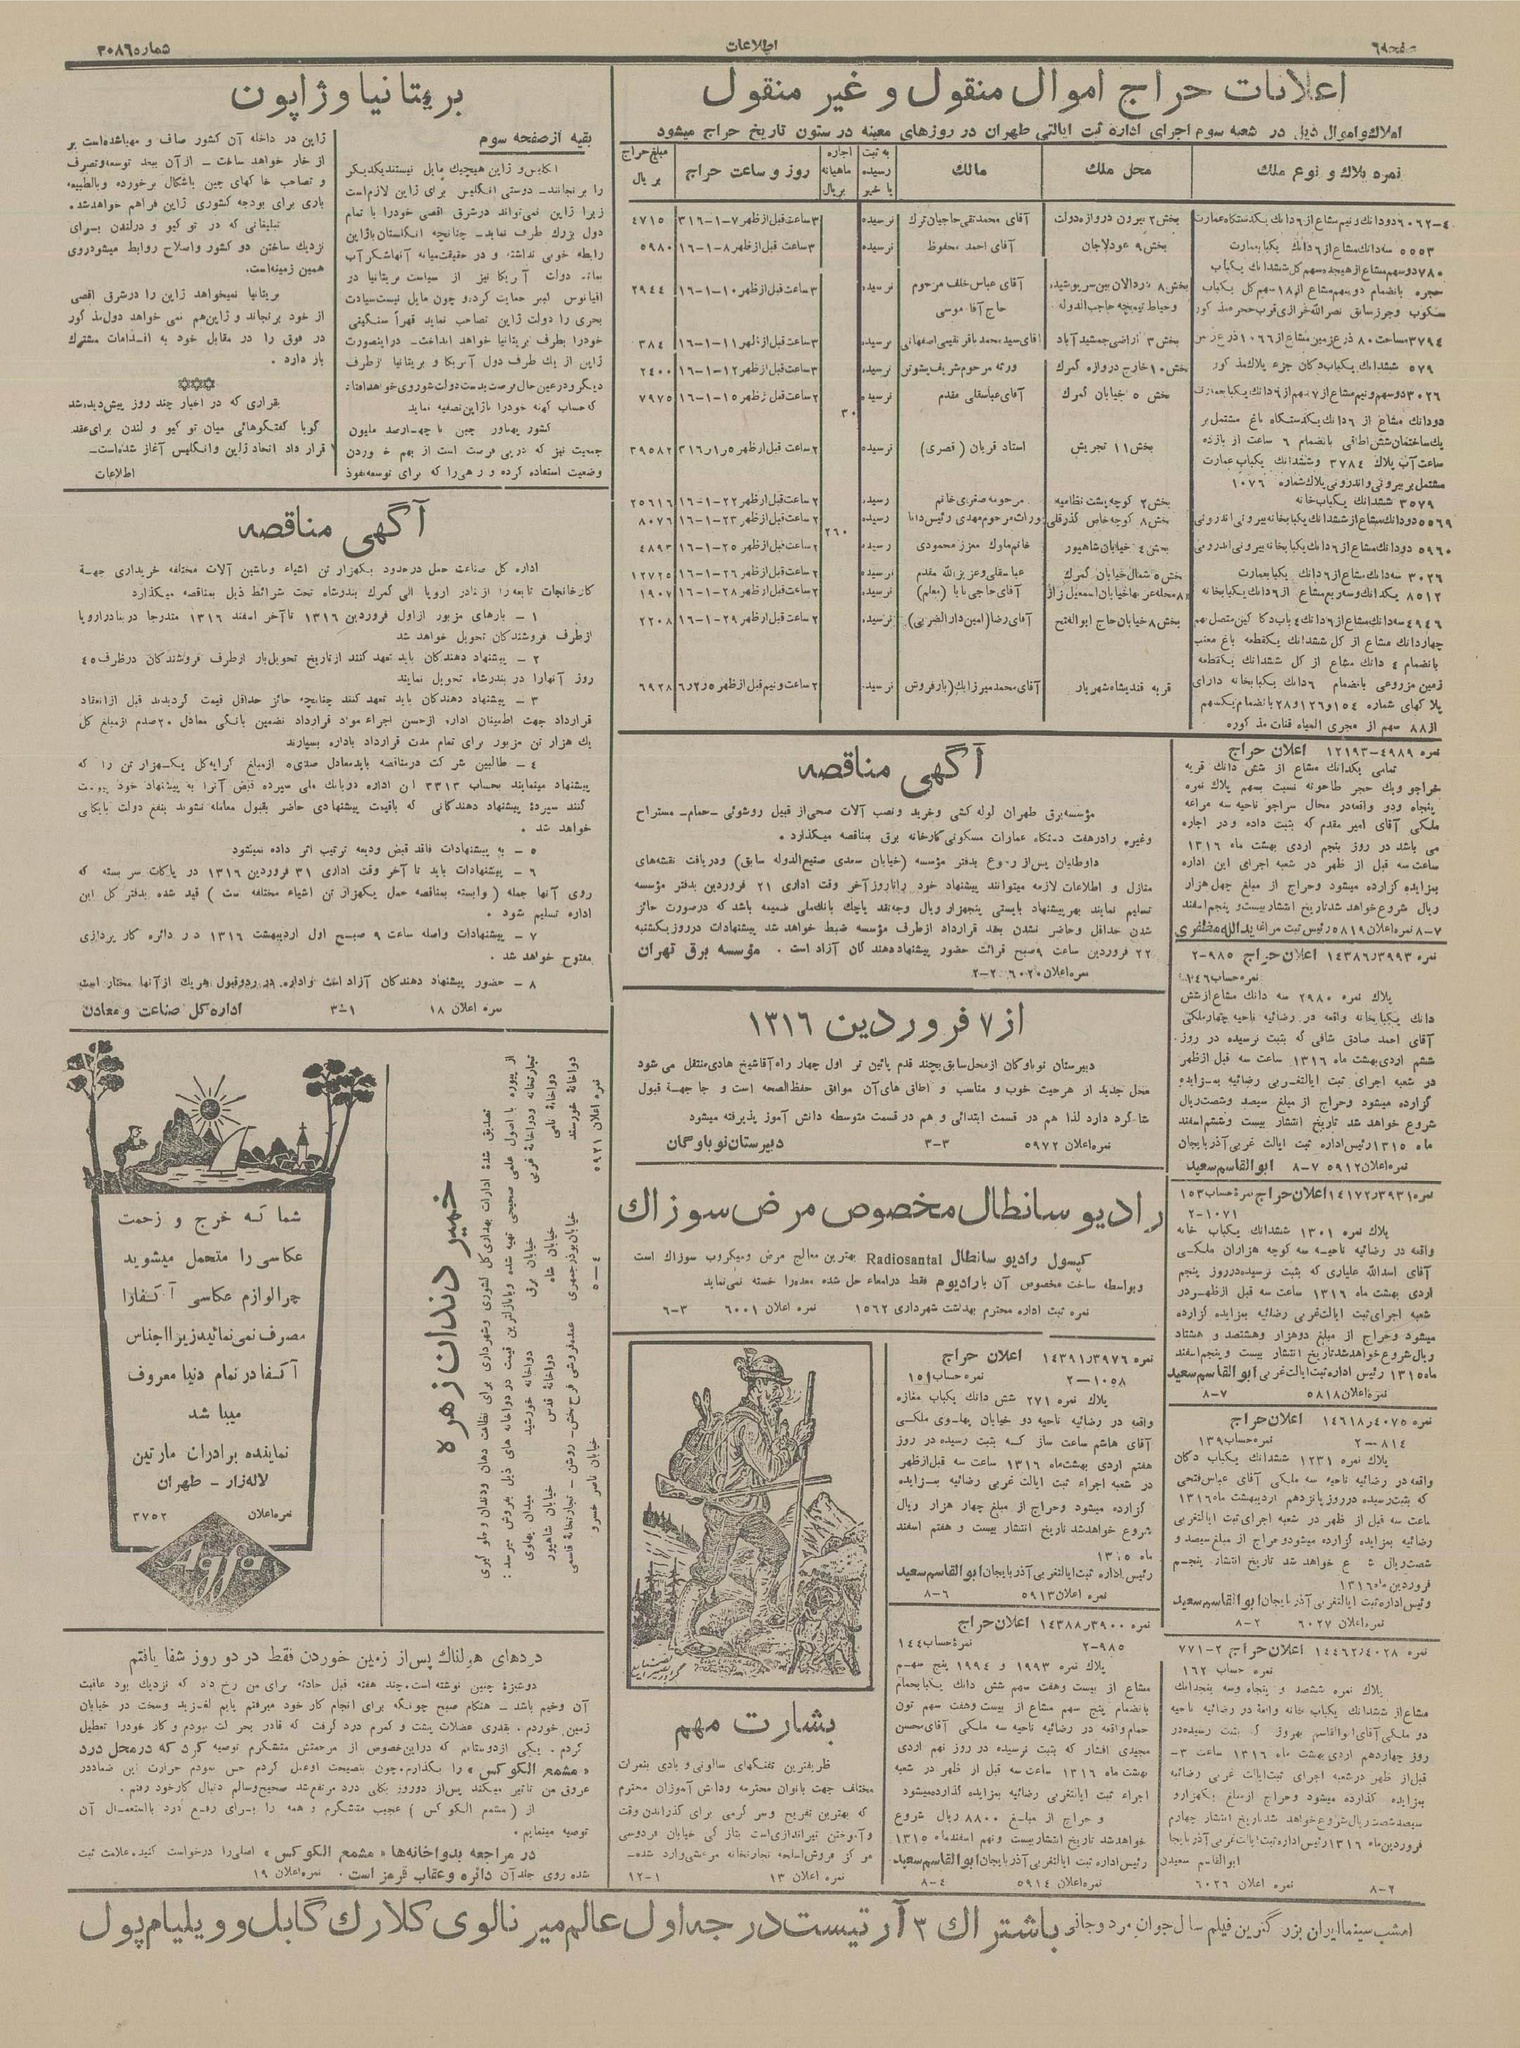 صفحه ۶
اطلاعات
شماره ۳۰۸۶
اعلانات حراج اموال منقول و غیر منقول
املاك و اموال ذیل در شعبه سوم اجرای اداره ثبت ایالتی طهران در روزهای معینه در ستون تاریخ حراج میشود
نمره پلاك و نوع ملك
محل ملك
مالك
به ثبت رسیده یا خیر
اجاره ماهیانه بریال
روز و ساعت حراج
مبلغ حراج بریال
بخش ۲ بیرون دروازه دولت
آقای محمدتقی حاجیان ترك
نرسیده
۳ ساعت قبل از ظهر ۷-۱-۳۱۶
۴۷۱۵
۵۵۵۳ سه دانك مشاع از ۶ دانك یکبابعمارت
بخش ۹ عودلاجان
آقای احمد محفوظ
نرسیده
۳ ساعت قبل از ظهر ۸-۱-۱۶
۵۹۸۰
آقای عباس خلف مرحوم
حاج آقا موسی
نرسیده
۳ ساعت قبل از ظهر ۱۰-۱-۱۶
۲۹۴۴
بخش ۳ اراضی جمشید آباد
آقای سید محمد باقر نفیسی اصفهانی
نرسیده
۳۸۴
۵۷۹ ششدانك یکباب دکان جزء پلاك مذکور
بخش ۱۰ خارج دروازه گمرك
نرسیده
۳ ساعت قبل از ظهر ۱۲-۱-۱۶
۲۴۰۰
بخش ۵ خیابان گمرك
آقای عباسقلی مقدم
نرسیده
۳۰
۲ ساعت قبل از ظهر ۱۵-۱-۱۶
۷۹۷۵
دودانك مشاع از ۶ دانك یکدستگاه باغ مشتمل بر
یك ساختمان شش اطاقی بانضمام ۶ ساعت از یازده
ساعت آب پلاك ۳۷۸۴ و ششدانك یکباب عمارت
مشتمل بر بیرونی و اندرونی پلاك شماره ۱۰۷۶
بخش ۱۱ تجریش
استاد قربان (قصری)
نرسیده
۳۹۵۸۲
۳۵۷۹ ششدانك یکبابخانه
بخش ۲ کوچه پشت نظامیه
مرحومه صغری خانم
رسیده
۲ ساعت قبل از ظهر ۲۲-۱-۱۶
۲۵۶۱۶
۵۵۶۹ دودانك مشاع از ششدانك یکبابخانه بیرونی اندرونی
بخش ۸ کوچه خاص گذر قلی
وراث مرحوم مهدی رئیس دانا
رسیده
۲۶۰
۲ ساعت قبل از ظهر ۲۳-۱-۱۶
۸۰۷۶
۵۹۶۰ دودانك مشاع از ۶ دانك یکبابخانه بیرونی اندرونی
بخش ۴ خیابان شاهپور
خانم ملوك معزز محمودی
رسیده
۲ ساعت قبل از ظهر ۲۵-۱-۱۶
۴۸۹۳
۳۰۲۶ سه دانك مشاع از ۶ دانك یکبابعمارت
بخش ۵ شمال خیابان گمرك
عباسقلی و عزیزالله مقدم
نرسیده
۲ ساعت قبل از ظهر ۲۶-۱-۱۶
۱۲۷۲۵
آقای حاجی بابا (معلم)
رسیده
۲ ساعت قبل از ظهر ۲۸-۱-۱۶
۱۹۰۷
بخش ۸ خیابان حاج ابوالفتح
آقای رضا (امین دارالضربی)
نرسیده
۲ ساعت قبل از ظهر ۲۹-۱-۱۶
۲۲۰۸
چهاردانك مشاع از کل ششدانك یکقطعه باغ معنب
بانضمام ۴ دانك مشاع از کل ششدانك یکقطعه
زمین مزروعی بانضمام ۶ دانك یکبابخانه دارای
پلاکهای شماره ۱۵۴ و ۱۲۶ و ۲۸ بانضمام یکسهم
از ۸۸ سهم از مجری المیاه قنات مذکوره
قریه قندیشاه شهریار
نرسیده
۶۹۲۸
نمره ۴۹۸۹-۱۲۱۹۳ اعلان حراج
تمامی یکدانك مشاع از شش دانك قریه
خراجو ویك حجر طاحونه نسبت بسهم پلاك نمره
پنجاه ودو واقعه در محال سراجو ناحیه سه مراغه
ملکی آقای امیر مقدم که بثبت داده و در اجاره
می باشد در روز پنجم اردی بهشت ماه ۱۳۱۶
ساعت سه قبل از ظهر در شعبه اجرای این اداره
بمزایده گزارده میشود وحراج از مبلغ چهل هزار
ریال شروع خواهد شد تاریخ انتشار بیست و پنجم اسفند
۸-۷ نمره اعلان ۵۸۱۹ رئیس ثبت مراغه یدالله مظفری
نمره ۱۴۳۸۶٫۳۹۹۳ اعلان حراج ۹۸۵-۲
نمره حساب ۱۴۶
پلاك نمره ۲۹۸۰ سه دانك مشاع از شش
دانك یکبابخانه واقعه در رضائیه ناحیه چهار ملکی
آقای احمد صادق شافی که بثبت نرسیده در روز
ششم اردی بهشت ماه ۱۳۱۶ ساعت سه قبل از ظهر
در شعبه اجرای ثبت ایالتغربی رضائیه بمزایده
گزارده میشود وحراج از مبلغ سیصد وشصت ریال
شروع خواهد شد تاریخ انتشار بیست وششم اسفند
ماه ۱۳۱۵ رئیس اداره ثبت ایالت غربی آذربایجان
نمره اعلان ۵۹۱۲ ۷-۸ ابوالقاسم سعید
نمره ۱۴۱۷۲٫۳۹۳۱ اعلان حراج نمره حساب ۱۵۳
۱۰۷۱-۲
پلاك نمره ۱۳۰۱ ششدانك یکباب خانه
واقعه در رضائیه ناحیه سه کوچه هزاران ملکی
آقای اسدالله علیاری که بثبت نرسیده در روز پنجم
اردی بهشت ماه ۱۳۱۶ ساعت سه قبل از ظهر در
شعبه اجرای ثبت ایالت غربی بمزایده گزارده
میشود وحراج از مبلغ دوهزار وهشتصد و هشتاد
ریال شروع خواهد شد تاریخ انتشار بیست وپنجم اسفند
ماه ۱۳۱۵ رئیس اداره ثبت ایالت غربی ابوالقاسم سعید
نمره اعلان ۵۸۱۸ ۷-۸
نمره ۱۴۶۱۸٫۴۰۷۵ اعلان حراج
۸۱۴-۲ نمره حساب ۱۳۹
پلاك نمره ۱۲۳۱ ششدانك یکباب دکان
واقعه در رضائیه ناحیه سه ملکی آقای عباس فتحی
که بثبت رسیده در روز پانزدهم اردیبهشت ماه ۱۳۱۶
ساعت سه قبل از ظهر در شعبه اجرای ثبت ایالتغربی
رضائیه بمزایده گزارده میشود وحراج از مبلغ سیصد و
شصت ریال شروع خواهد شد تاریخ انتشار پنجم
فروردین ماه ۱۳۱۶
رئیس اداره ثبت ایالتغربی آذربایجان ابوالقاسم سعید
نمره اعلان ۶۰۲۷ ۲-۸
نمره ۱۴۴۶۲٫۴۰۲۸ اعلان حراج ۲-۷۷۱
نمره حساب ۱۶۲
پلاك نمره ششصد و پنجاه وسه پنجدانك
مشاع از ششدانك یکباب خانه واقعه در رضائیه ناحیه
دو ملکی آقای ابوالقاسم بهروز که بثبت رسیده در
روز چهاردهم اردی بهشت ماه ۱۳۱۶ ساعت ۳
قبل از ظهر در شعبه اجرای ثبت ایالت غربی رضائیه
بمزایده گذارده میشود وحراج از مبلغ یکهزار و
سیصد شصت ریال شروع خواهد شد تاریخ انتشار چهارم
فروردین ماه ۱۳۱۶ رئیس اداره ثبت ایالت غربی آذربایجا
ابوالقاسم سعیدن
۲-۸ نمره اعلان ۶۰۲۶
آگهی مناقصه
مؤسسه برق طهران لوله کشی وخرید ونصب آلات صحی از قبیل روشوئی - حمام - مستراح
وغیره را در هفت دستگاه عمارات مسکونی کارخانه برق بمناقصه میگذارد.
داوطلبان پس از رجوع بدفتر مؤسسه (خیابان سعدی صنیع الدوله سابق) ودریافت نقشه های
منازل و اطلاعات لازمه میتوانند پیشنهاد خود را تا روز آخر وقت اداری ۲۱ فروردین بدفتر مؤسسه
تسلیم نمایند بهر پیشنهاد بایستی پنجهزار ریال وجه نقد یا چك بانك ملی ضمیمه باشد که در صورت حائز
شدن حداقل وحاضر نشدن بعقد قرارداد از طرف مؤسسه ضبط خواهد شد پیشنهادات در روز یکشنبه
۲۲ فروردین ساعت ۹ صبح قرائت حضور پیشنهاد دهندگان آزاد است. مؤسسه برق تهران
نمره اعلان ۶۰۲۰ ۲-۲
از ۷ فروردین ۱۳۱۶
دبیرستان نوباوگان از محل سابق بچند قدم پائین تر اول چهار راه آقا شیخ هادی منتقل می شود
محل جدید از هر حیث خوب و مناسب و اطاق های آن موافق حفظ الصحه است و جا جهة قبول
شاگرد دارد لذا هم در قسمت ابتدائی و هم در قسمت متوسطه دانش آموز پذیرفته میشود
نمره اعلان ۵۹۷۲ ۳-۳ دبیرستان نوباوگان
رادیو سانطال مخصوص مرض سوزاك
کپسول رادیو سانطال Radiosantal بهترین معالج مرض ومیکروب سوزاك است
وبواسطه ساخت مخصوص آن با رادیوم فقط در امعاء حل شده معده را خسته نمی نماید
نمره ثبت اداره محترم بهداشت شهرداری ۱۵۶۲ نمره اعلان ۶۰۰۱ ۳-۶
نمره ۱۴۳۹۱٫۳۹۷۶ اعلان حراج
۱۰۵۸-۲ نمره حساب ۱۵۱
پلاك نمره ۲۷۱ شش دانك یکباب مغازه
واقعه در رضائیه ناحیه دو خیابان پهلوی ملکی
آقای هاشم ساعت ساز که بثبت رسیده در روز
هفتم اردی بهشت ماه ۱۳۱۶ ساعت سه قبل از ظهر
در شعبه اجراء ثبت ایالت غربی رضائیه بمزایده
گزارده میشود وحراج از مبلغ چهار هزار ریال
شروع خواهد شد تاریخ انتشار بیست و هفتم اسفند
ماه ۱۳۱۵
رئیس اداره ثبت ایالتغربی آذربایجان ابوالقاسم سعید
نمره اعلان ۵۹۱۳ ۶-۸
نمره ۱۴۳۸۸٫۳۹۰۰ اعلان حراج
۹۸۵-۲ نمره حساب ۱۴۴
پلاك نمره ۱۹۹۳ و ۱۹۹۴ پنج سهم
مشاع از بیست وهفت سهم شش دانك یکبابحمام
بانضمام پنج سهم مشاع از بیست وهفت سهم تون
حمام واقعه در رضائیه ناحیه سه ملکی آقای محسن
مجیدی افشار که بثبت نرسیده در روز نهم اردی
بهشت ماه ۱۳۱۶ ساعت سه قبل از ظهر در شعبه
اجراء ثبت ایالتغربی رضائیه بمزایده گذارده میشود
و حراج از مبلغ ۸۸۰۰ ریال شروع
خواهد شد تاریخ انتشار بیست و نهم اسفند ماه ۱۳۱۵
رئیس اداره ثبت ایالتغربی آذربایجان ابوالقاسم سعید
نمره اعلان ۵۹۱۴ ۴-۸
بشارت مهم
ظریفترین تفنگهای سالونی و بادی بنمرات
مختلف جهت بانوان محترمه ودانش آموزان محترم
که بهترین تفریح وسرگرمی برای گذراندن وقت
وآموختن تیراندازی است بتازگی خیابان فردوسی
مرکز فروش اسلحه تجارتخانه مرعشی وارد شده
نمره اعلان ۱۳ ۱-۱۲
بریتانیا و ژاپون
بقیه از صفحه سوم
انگلیس و ژاپن هیچیك مایل نیستند یکدیگر
را برنجانند - دوستی انگلیس برای ژاپن لازم است
زیرا ژاپن نمی تواند در شرق اقصی خود را با تمام
دول بزرك طرف نماید - چنانچه انگلستان با ژاپن
رابطه خوبی نداشته و در حقیقت میانه آنها شکر آب
باشد دولت آمریکا نیز از سیاست بریتانیا در
اقیانوس کبیر حمایت کرده و چون مایل نیست سیادت
بحری را دولت ژاپن تصاحب نماید قهراً سنگینی
خود را بطرف بریتانیا خواهد انداخت - در اینصورت
ژاپن از یك طرف دول آمریکا و بریتانیا از طرف
دیگر و در عین حال فرصت بدست دولت شوروی خواهد افتاد
که حساب کهنه خود را با ژاپن تصفیه نماید
کشور پهناور چین با چهارصد ملیون
جمعیت نیز که در پی فرصت است از بهم خوردن
وضعیت استفاده کرده و راهی را که برای توسعه نفوذ
ژاپن در داخله آن کشور صاف و مهیا شده است پر
از خار خواهد ساخت - از آن ببعد توسعه و تصرف
و تصاحب خاکهای چین باشکال برخورده و بالطبیعه
باری برای بودجه کشوری ژاپن فراهم خواهد شد.
تبلیغاتی که در توکیو و در لندن برای
نزدیك ساختن دو کشور واصلاح روابط میشود روی
همین زمینه است.
بریتانیا نمیخواهد ژاپن را در شرق اقصی
از خود برنجاند و ژاپن هم نمی خواهد دول مذکور
در فوق را در مقابل خود به اقدامات مشترك
باز دارد.
بقراری که در اخبار چند روز پیش دیده شد
گویا گفتگوهائی میان توکیو و لندن برای عقد
قرارداد اتحاد ژاپن وانگلیس آغاز شده است.
اطلاعات
آگهی مناقصه
اداره کل صناعت حمل در حدود یکهزار تن اشیاء وماشین آلات مختلفه خریداری جهة
کارخانجات تابعه را از بنادر اروپا الی گمرك بندرشاه تحت شرائط ذیل بمناقصه میگذارد
۱ - بارهای مزبور از اول فروردین ۱۳۱۶ تا آخر اسفند ۱۳۱۶ متدرجا در بنادر اروپا
از طرف فروشندگان تحویل خواهد شد
۲ - پیشنهاد دهندگان باید تعهد کنند از تاریخ تحویل بار از طرف فروشندگان در ظرف ۴۵
روز آنها را در بندرشاه تحویل نمایند
۳ - پیشنهاد دهندگان باید تعهد کنند چنانچه حائز حداقل قیمت گردیدند قبل از انعقاد
قرارداد جهت اطمینان اداره از حسن اجراء مواد قرارداد تضمین بانکی معادل ۲۰ صدم از مبلغ کل
یك هزار تن مزبور برای تمام مدت قرارداد باداره بسپارند
۴ - طالبین شرکت در مناقصه باید معادل صدی ۵ از مبلغ کرایه کل یکهزار تن را که
پیشنهاد مینمایند بحساب ۳۳۱۳ این اداره در بانك ملی سپرده قبض آنرا به پیشنهاد خود پیوست
کنند سپرده پیشنهاد دهندگانی که باقیمت پیشنهادی حاضر بقبول معامله نشوند بنفع دولت بایگانی
خواهد شد.
۵ - به پیشنهادات فاقد قبض ودیعه ترتیب اثر داده نمیشود
۶ - پیشنهادات باید تا آخر وقت اداری ۳۱ فروردین ۱۳۱۶ در پاکات سر بسته که
روی آنها جمله (وابسته بمناقصه حمل یکهزار تن اشیاء مختلفه است) قید شده بدفتر کل این
اداره تسلیم شود.
۷ - پیشنهادات واصله ساعت ۹ صبح اول اردیبهشت ۱۳۱۶ در دائره کارپردازی
مفتوح خواهد شد.
۸ - حضور پیشنهاد دهندگان آزاد است و اداره در رد و قبول هر یك از آنها مختار است
نمره اعلان ۱۸ ۱-۳ اداره کل صناعت و معادن
خمیر دندان زهره
تصدیق شده ادارات بهداری کل کشوری وشهرداری برای نظافت دهان ودندان و جلوگیری
از پیوره با اصول علمی صحیحی تهیه شده و با نازلترین قیمت در دواخانه های ذیل بفروش میرسد:
تجارتخانه ودواخانه غربی خیابان برق دواخانه خورشید میدان پهلوی
دواخانه نامی خیابان شاه دواخانه قدس خیابان شاهپور
دواخانه خورسند خیابان بوذرجمهری عمده فروشی فرح بخش - روشن - تجارتخانه قاسمی
نمره اعلان ۵۹۲۱ ۴-۵ خیابان ناصر خسرو
شما که خرج و زحمت
عکاسی را متحمل میشوید
چرا لوازم عکاسی آگفا را
مصرف نمی نمائید زیرا اجناس
آگفا در تمام دنیا معروف
میباشد
نماینده برادران مارتین
لاله زار - طهران
نمره اعلان ۳۷۵۲
Agfa
دردهای هولناك پس از زمین خوردن فقط در دو روز شفا یافتم
دوشیزه چنین نوشته است. چند هفته قبل حادثه برای من رخ داد که نزدیك بود عاقبت
آن وخیم باشد - هنگام صبح چونکه برای انجام کار خود میرفتم پایم لغزید وسخت در خیابان
زمین خوردم. بقدری عضلات پشت و کمرم درد گرفت که قادر بحرکت نبودم و کار خود را تعطیل
کردم. یکی از دوستانم که در این خصوص از مرحمتش متشکرم توصیه کرد که در محل درد
«مشمع الکوکس» را بگذارم. چون بنصیحت او عمل کردم حس نمودم حرارت این ضماد در
عروق من تاثیر میکند پس از دو روز بکلی درد مرتفع شد صحیح وسالم دنبال کار خود رفتم.
از (مشمع الکوکس) عجیب متشکرم و همه را برای رفع درد باستعمال آن
توصیه مینمایم.
در مراجعه بدواخانه ها «مشمع الکوکس» اصلی را درخواست کنید. علامت ثبت
شده روی جلد آن دائره وعقاب قرمز است. نمره اعلان ۱۹
امشب سینما ایران بزرگترین فیلم سال جوانمرد و جانی باشتراك ۳ آرتیست درجه اول عالم میرنالوی کلارك گابل و ویلیام پول